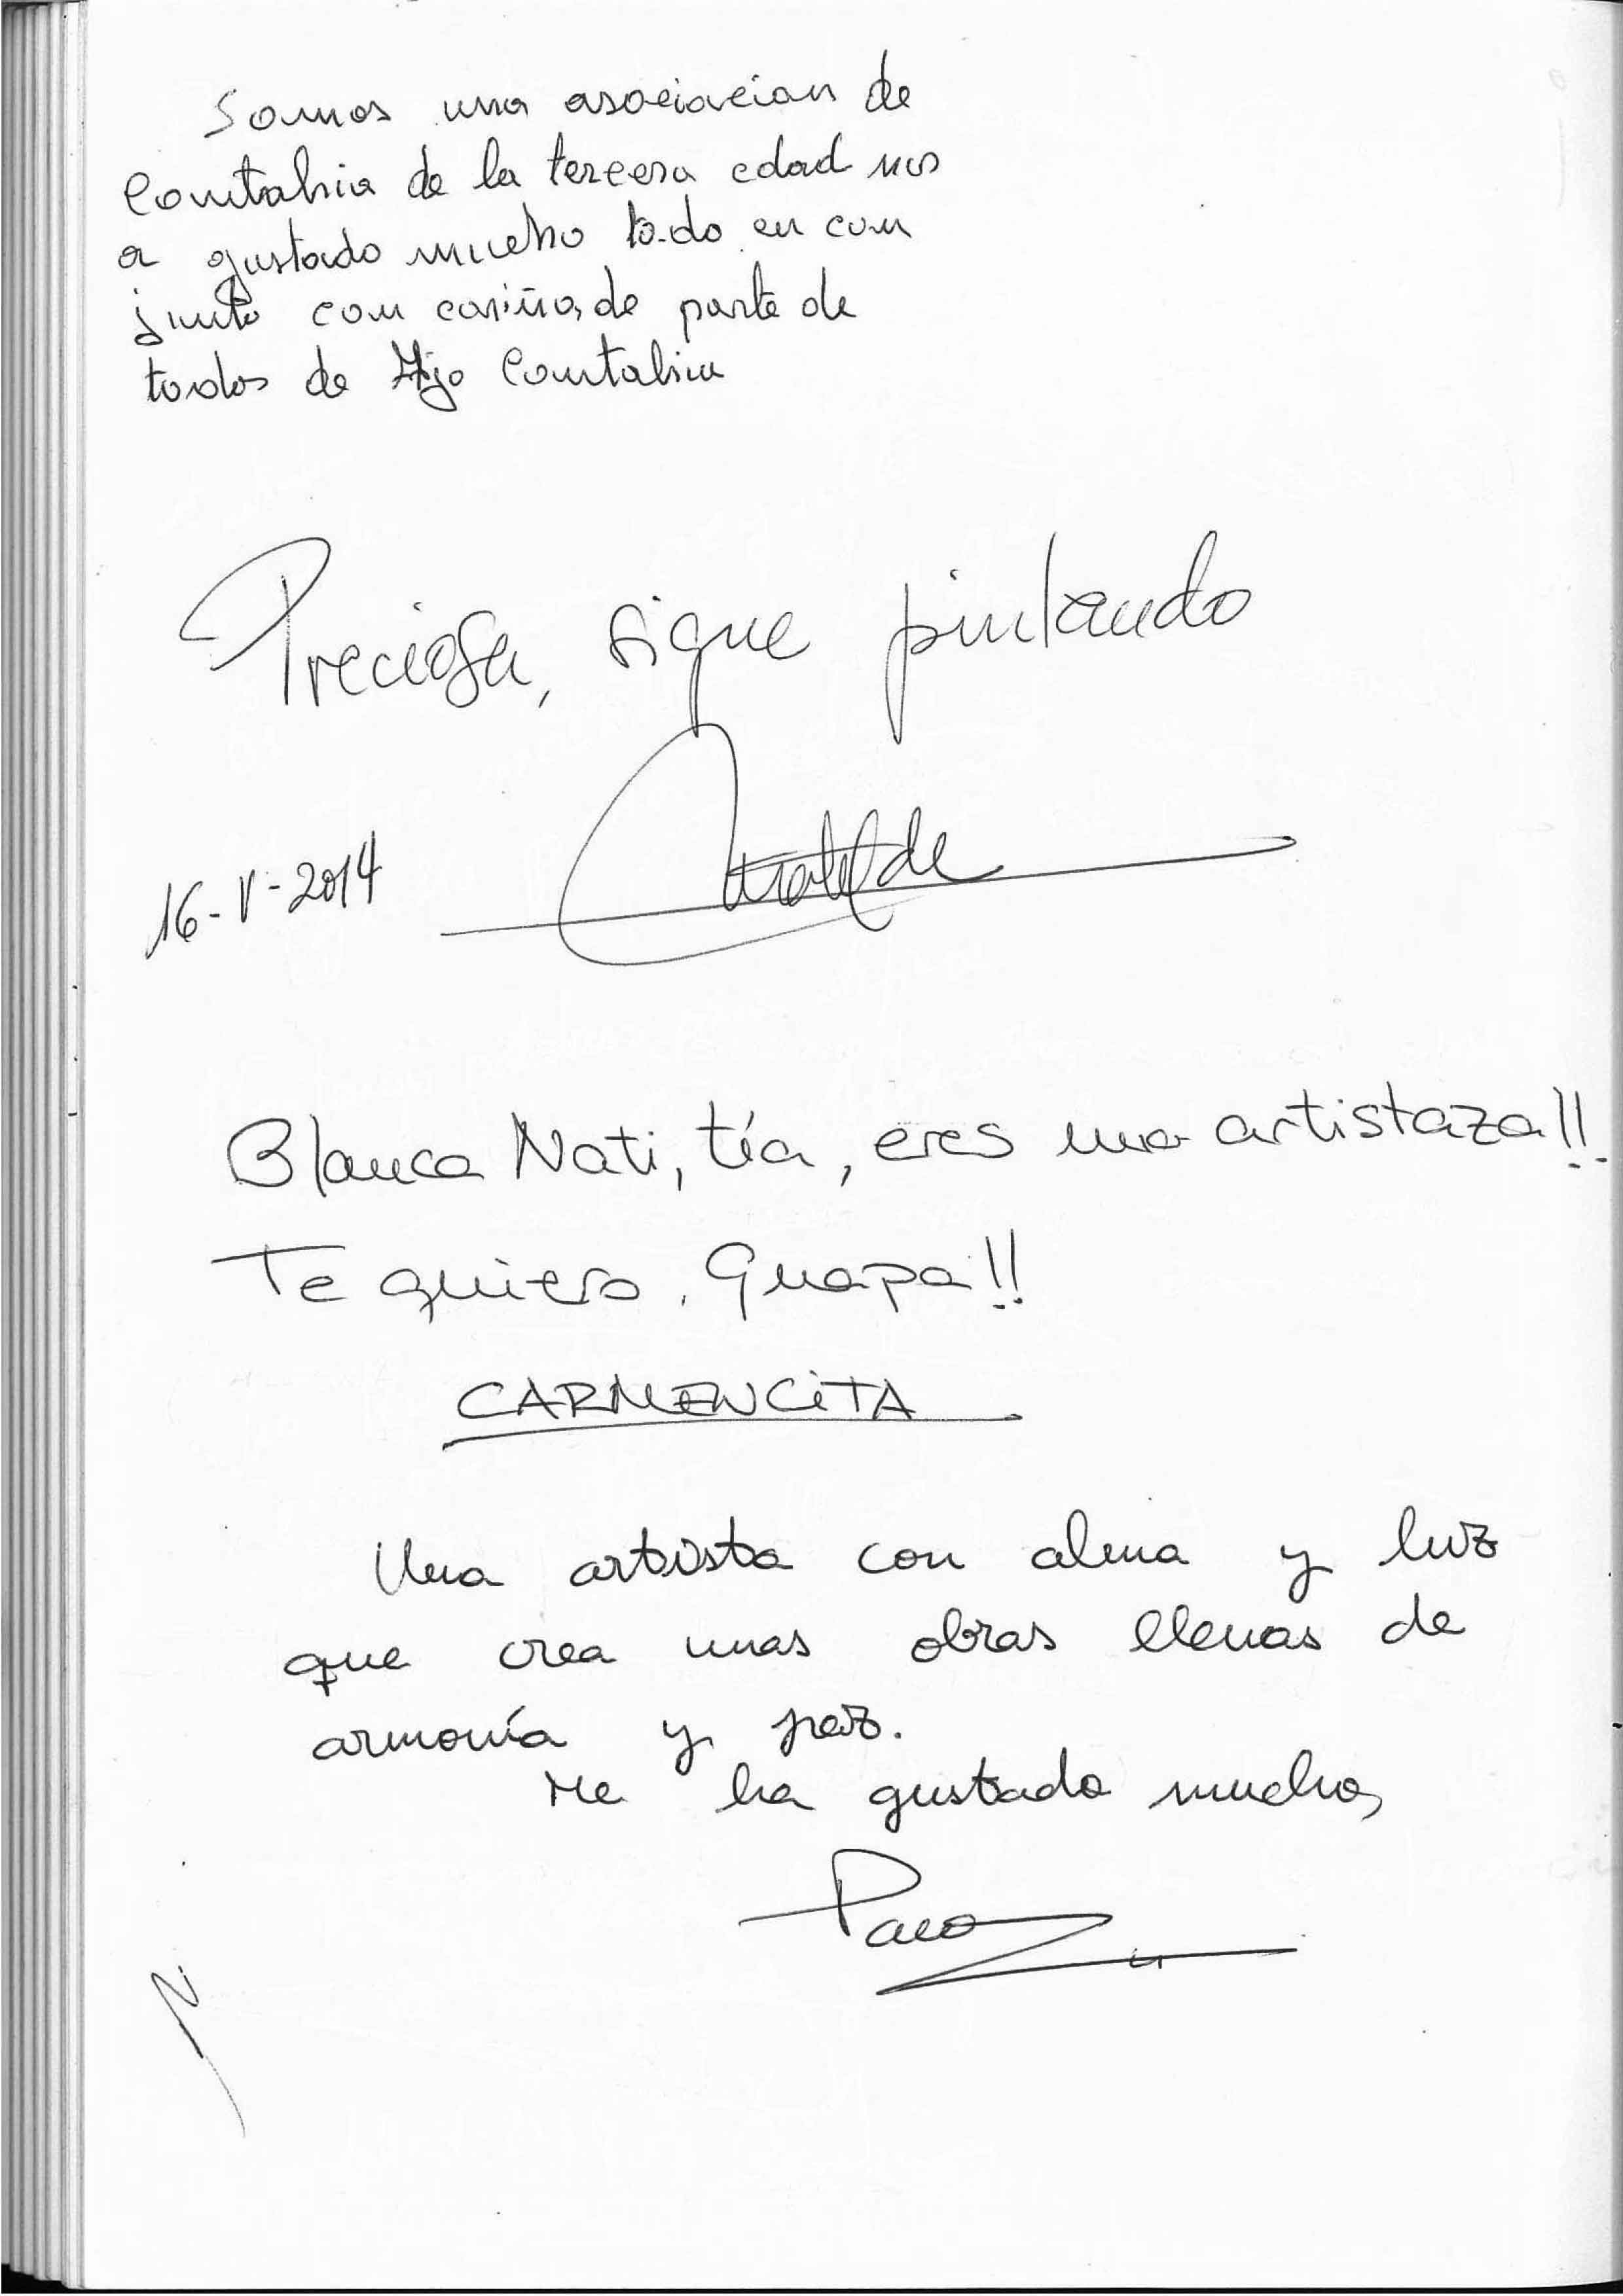 Somos una asociacion de
Cantabria de la tercera edad nos
a gustado mucho todo en con
junto con cariño, de parte de
todos de Ajo Cantabria
Preciosa, sigue pintando
16-V-2014 Matilde
Blanca Nati, tía, eres una artistaza!!
Te quiero, Guapa!!
CARMENCiTA
Una artista con alma y luz
que crea unas obras llenas de
armonía y paz.
Me ha gustado mucho,
Paco